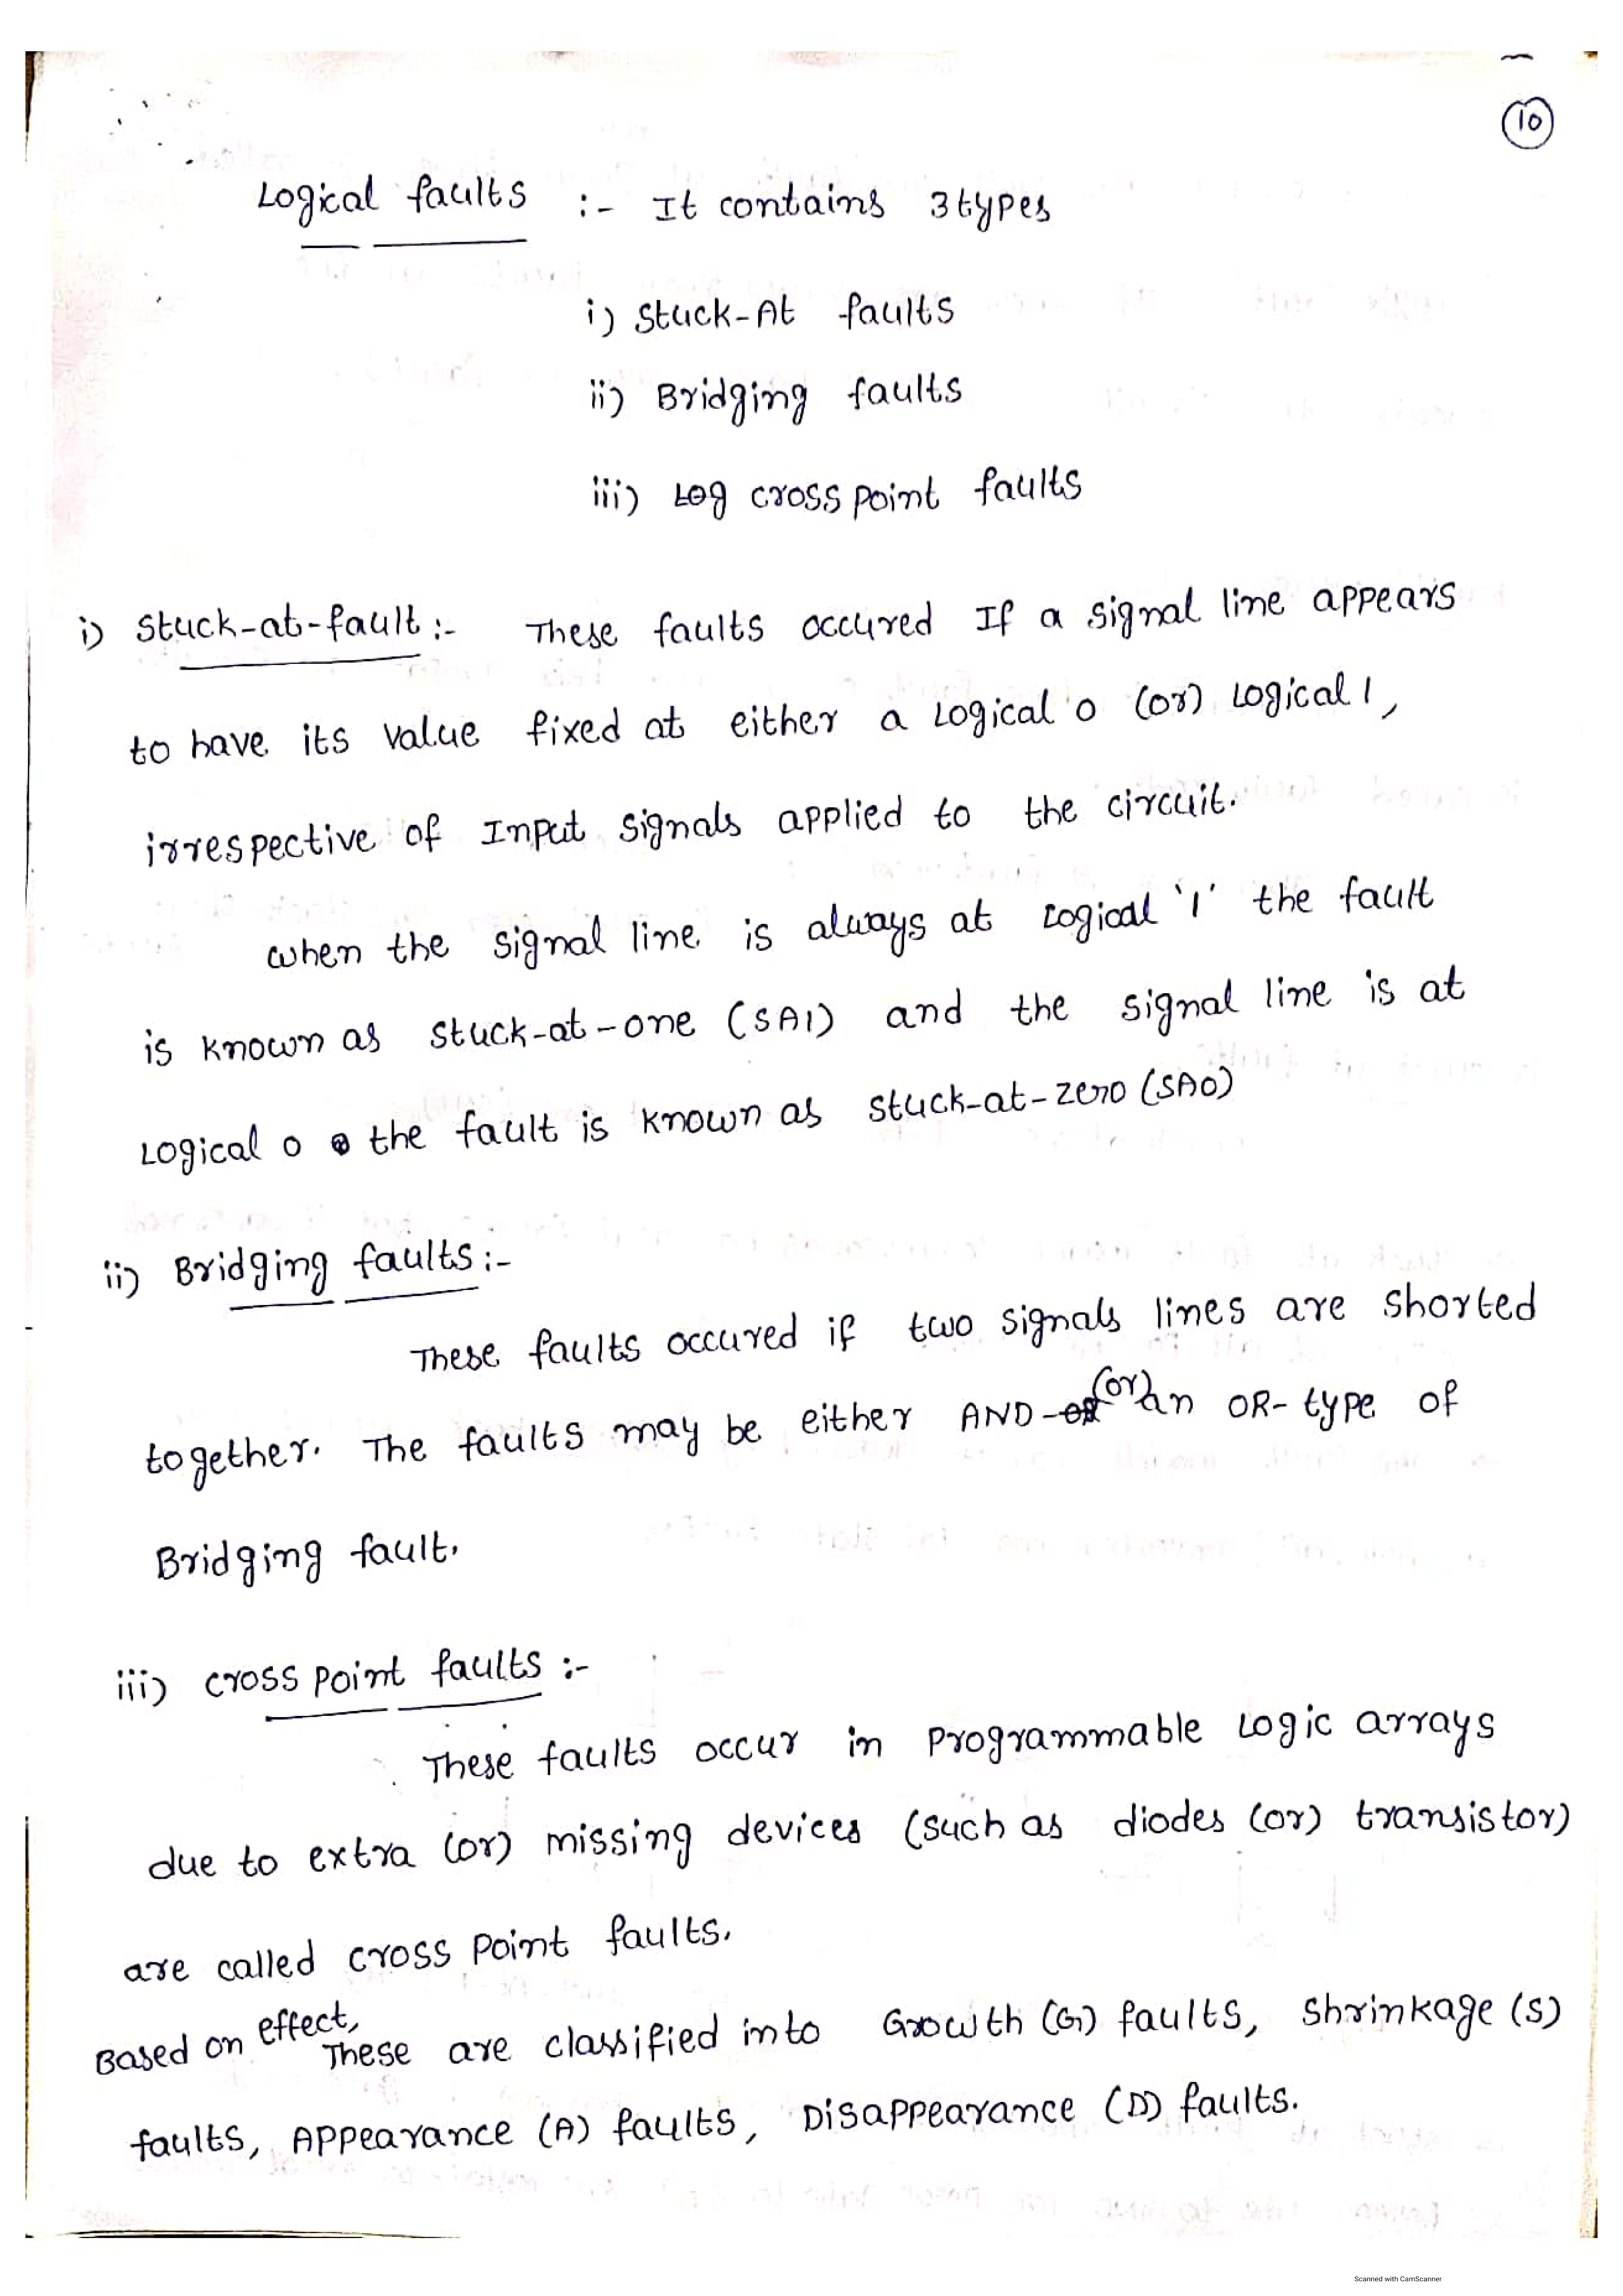 10
Logical faults :- It contains 3 types
i) Stuck-At faults
ii) Bridging faults
iii) Log cross point faults
i) Stuck-at-fault :- These faults occured If a signal line appears
to have its value fixed at either a Logical 0 (or) Logical 1,
irrespective of Input signals applied to the circuit.
when the signal line is always at Logical '1' the fault
is known as stuck-at-one (SA1) and the signal line is at
Logical 0 the fault is known as stuck-at-zero (SA0)
ii) Bridging faults :-
These faults occured if two signals lines are shorted
together. The faults may be either AND- (or) an OR-type of
Bridging fault.
iii) cross point faults :-
These faults occur in Programmable Logic arrays
due to extra (or) missing devices (such as diodes (or) transistor)
are called cross point faults.
Based on effect, These are classified into Growth (G) faults, Shrinkage (S)
faults, Appearance (A) faults, Disappearance (D) faults.
Scanned with CamScanner